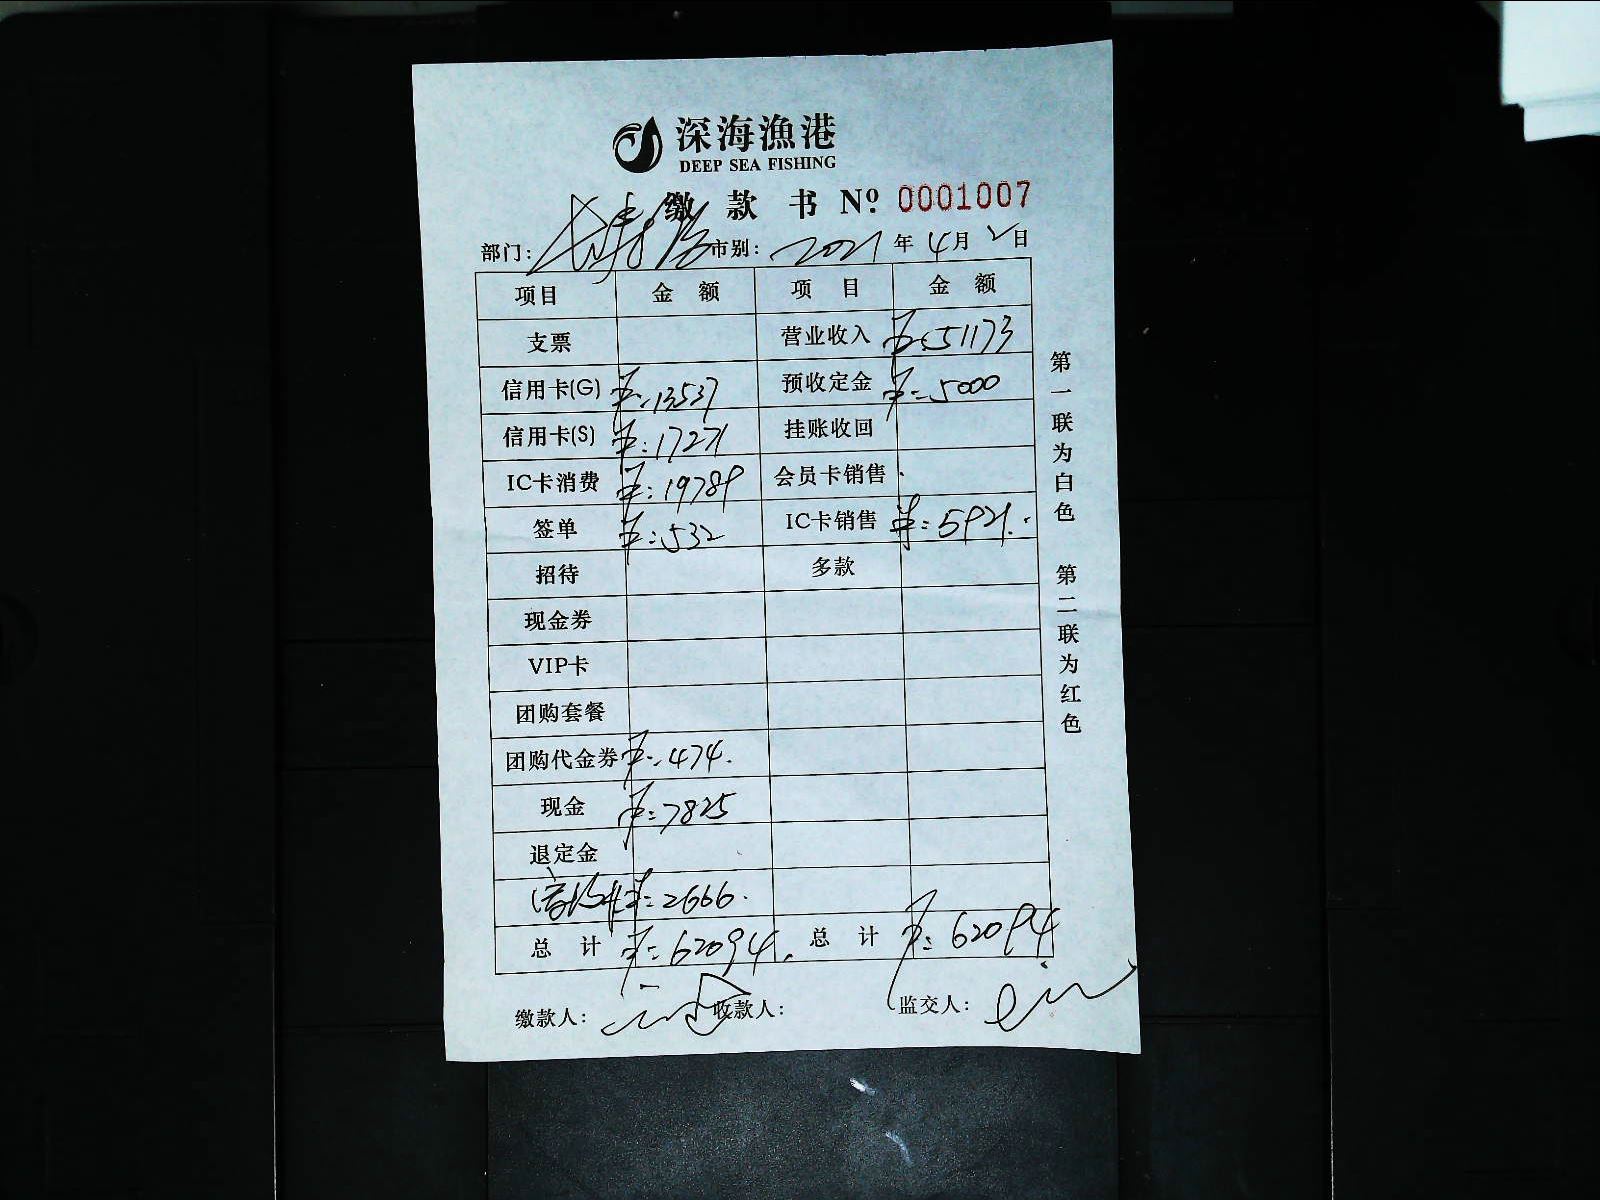 深海漁港
DEEP SEA FISHING
缴款书 Nº: 0001007
部门: 市别: 2021年4月2日
项目 金额 项目 金额
支票 营业收入 ¥:51173
信用卡(G) ¥:13537 预收定金 ¥:5000
信用卡(S) ¥:17271 挂账收回
IC卡消费 ¥:19789 会员卡销售
签单 ¥:532 IC卡销售 ¥:5921.
招待 多款
现金券
VIP卡
团购套餐
团购代金券 ¥:474.
现金 ¥:7825
退定金
¥:2666.
总计 ¥:62094. 总计 ¥:62094
缴款人: 收款人: 监交人:
第一联为白色 第二联为红色